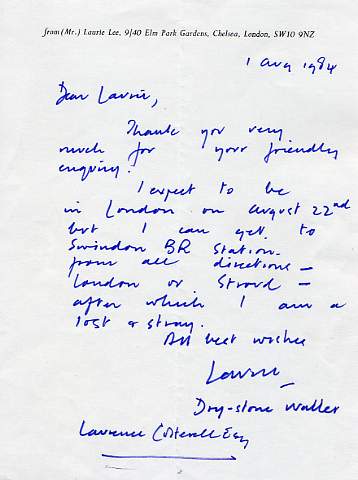 from (Mr.) Laurie Lee, 9/40 Elm Park Gardens, Chelsea, London, SW10 9NZ
1 Aug 1984
Dear Laurie,
Thank you very
much for your friendly
enquiry.
I expect to be
in London on August 22nd
but I can get to
Swindon BR Station
from all directions —
London or Stroud —
after which I am a
lost & stray.
All best wishes
Laurie
Dry-stone Waller
Laurence Esq